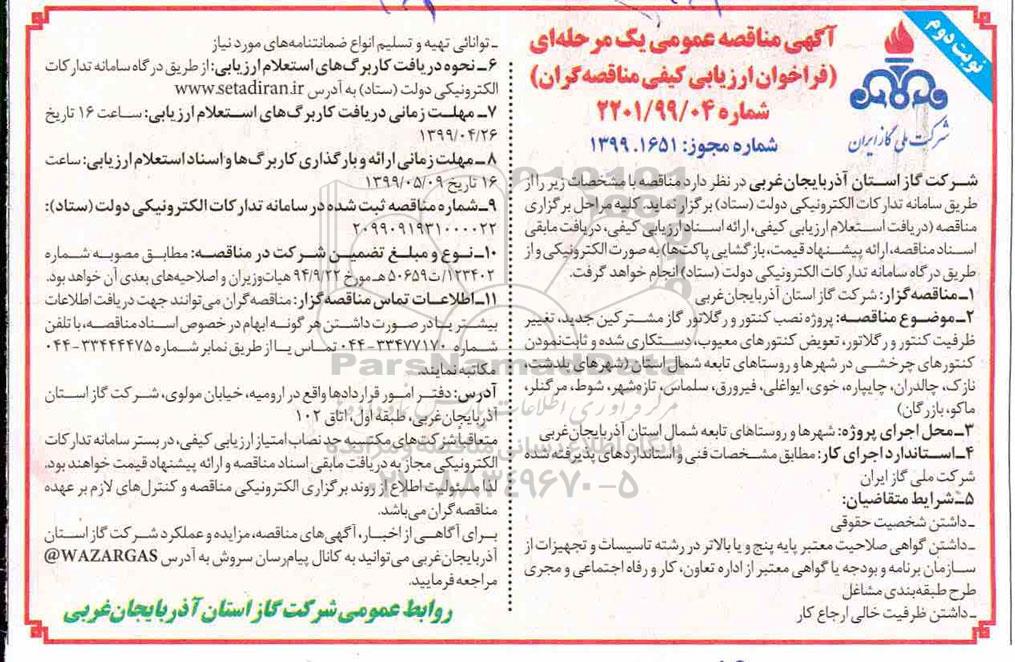 نوبت دوم
شرکت ملی گاز ایران
آگهی مناقصه عمومی یک مرحله‌ای
(فراخوان ارزیابی کیفی مناقصه‌گران)
شماره ۲۲۰۱/۹۹/۰۴
شماره مجوز: ۱۳۹۹.۱۶۵۱
شرکت گاز استان آذربایجان‌غربی در نظر دارد مناقصه با مشخصات زیر را از
طریق سامانه تدارکات الکترونیکی دولت (ستاد) برگزار نماید. کلیه مراحل برگزاری
مناقصه (دریافت استعلام ارزیابی کیفی، ارائه اسناد ارزیابی کیفی، دریافت مابقی
اسناد مناقصه، ارائه پیشنهاد قیمت، بازگشایی پاکت‌ها) به صورت الکترونیکی و از
طریق درگاه سامانه تدارکات الکترونیکی دولت (ستاد) انجام خواهد گرفت.
۱ـ مناقصه‌گزار: شرکت گاز استان آذربایجان‌غربی
۲ـ موضوع مناقصه: پروژه نصب کنتور و رگلاتور گاز مشترکین جدید، تغییر
ظرفیت کنتور و رگلاتور، تعویض کنتورهای معیوب، دستکاری شده و ثابت‌نمودن
کنتورهای چرخشی در شهرها و روستاهای تابعه شمال استان (شهرهای پلدشت،
نازک، چالدران، چایپاره، خوی، ایواغلی، فیرورق، سلماس، تازه‌شهر، شوط، مرگنلر،
ماکو، بازرگان)
۳ـ محل اجرای پروژه: شهرها و روستاهای تابعه شمال استان آذربایجان‌غربی
۴ـ استاندارد اجرای کار: مطابق مشخصات فنی و استانداردهای پذیرفته شده
شرکت ملی گاز ایران
۵ـ شرایط متقاضیان:
ـ داشتن شخصیت حقوقی
ـ داشتن گواهی صلاحیت معتبر پایه پنج و یا بالاتر در رشته تاسیسات و تجهیزات از
سازمان برنامه و بودجه یا گواهی معتبر از اداره تعاون، کار و رفاه اجتماعی و مجری
طرح طبقه‌بندی مشاغل
ـ داشتن ظرفیت خالی ارجاع کار
ـ توانائی تهیه و تسلیم انواع ضمانتنامه‌های مورد نیاز
۶ـ نحوه دریافت کاربرگ‌های استعلام ارزیابی: از طریق درگاه سامانه تدارکات
الکترونیکی دولت (ستاد) به آدرس www.setadiran.ir
۷ـ مهلت زمانی دریافت کاربرگ‌های استعلام ارزیابی: ساعت ۱۶ تاریخ
۱۳۹۹/۰۴/۲۶
۸ـ مهلت زمانی ارائه و بارگذاری کاربرگ‌ها و اسناد استعلام ارزیابی: ساعت
۱۶ تاریخ ۱۳۹۹/۰۵/۰۹
۹ـ شماره مناقصه ثبت شده در سامانه تدارکات الکترونیکی دولت (ستاد):
۲۰۹۹۰۹۱۹۳۱۰۰۰۰۲۲
۱۰ـ نوع و مبلغ تضمین شرکت در مناقصه: مطابق مصوبه شماره
۱۲۳۴۰۲/ت۵۰۶۵۹هـ مورخ ۹۴/۹/۲۲ هیات‌وزیران و اصلاحیه‌های بعدی آن خواهد بود.
۱۱ـ اطلاعات تماس مناقصه‌گزار: مناقصه‌گران می‌توانند جهت دریافت اطلاعات
بیشتر یا در صورت داشتن هرگونه ابهام در خصوص اسناد مناقصه، با تلفن
شماره ۳۳۴۷۷۱۷۰-۰۴۴ تماس یا از طریق نمابر شماره ۳۳۴۴۴۴۷۵-۰۴۴
مکاتبه نمایند.
آدرس: دفتر امور قراردادها واقع در ارومیه، خیابان مولوی، شرکت گاز استان
آذربایجان‌غربی، طبقه اول، اتاق ۱۰۲
متعاقبا شرکت‌های مکتسبه حد نصاب امتیاز ارزیابی کیفی، در بستر سامانه تدارکات
الکترونیکی مجاز به دریافت مابقی اسناد مناقصه و ارائه پیشنهاد قیمت خواهند بود.
لذا مسئولیت اطلاع از روند برگزاری الکترونیکی مناقصه و کنترل‌های لازم بر عهده
مناقصه‌گران می‌باشد.
برای آگاهی از اخبار، آگهی‌های مناقصه، مزایده و عملکرد شرکت گاز استان
آذربایجان‌غربی می‌توانید به کانال پیام‌رسان سروش به آدرس WAZARGAS@
مراجعه فرمایید.
روابط عمومی شرکت گاز استان آذربایجان‌غربی
ParsNamadData
پایگاه اطلاع رسانی مناقصه و مزایده
۰۲۱-۸۸۳۴۹۶۷۰-۵